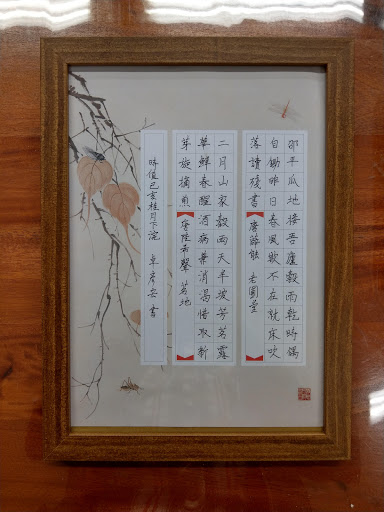 邵平瓜地接吾廬穀雨乾時偶
自鋤昨日春風欺不在就床吹
落讀殘書 唐薛能 老圃堂
二月山家穀雨天半坡芳茗露
華鮮春醒酒病兼消渴惜取新
芽旋摘煎 唐陸希聲 茗地
時值己亥桂月下浣 卓彥安 書